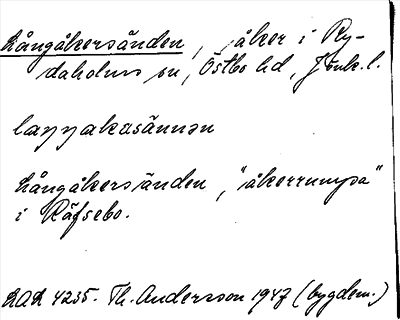 Långåkersänden, åker i Ry-
daholms sn, Östbo hd, Jönk. l.
laŋŋakasännən
Långåkersänden, "åkerrumpa"
i Räfsebo.
4235. Th. Andersson 1947 (bygdem.)